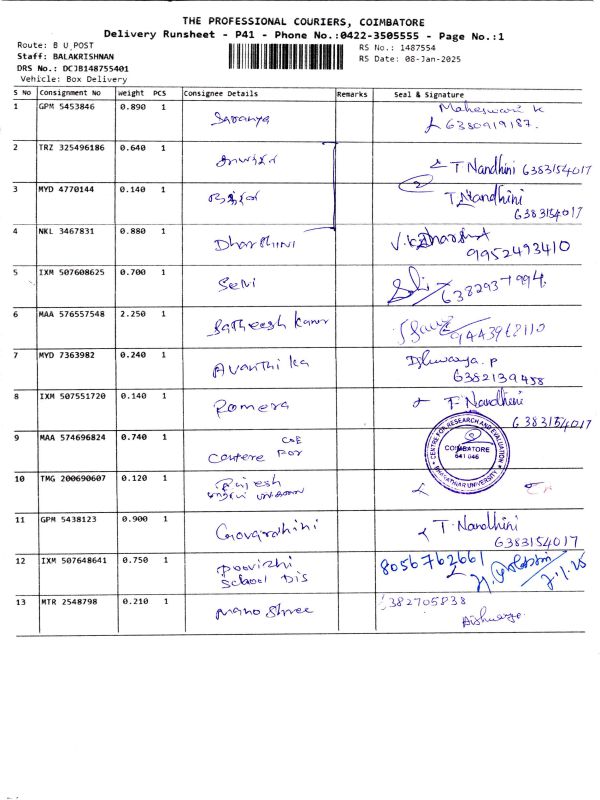 THE PROFESSIONAL COURIERS, COIMBATORE
Delivery Runsheet - P41 - Phone No.:0422-3505555 - Page No.:1
Route: B U POST
RS No.: 1487554
Staff: BALAKRISHNAN
RS Date: 08-Jan-2025
DRS No.: DCJB148755401
Vehicle: Box Delivery
S No Consignment No Weight PCS Consignee Details Remarks Seal & Signature
1 GPM 5453846 0.890 1 Saranya Maheswari K
6380919187.
2 TRZ 325496186 0.640 1 T Nandhini 6383154017
3 MYD 4770144 0.140 1 T Nandhini
6383154017
4 NKL 3467831 0.880 1 Dharshini
9952493410
5 IXM 507608625 0.700 1 Selvi
6382937994.
6 MAA 576557548 2.250 1 Satheesh Kumar
9443968110
7 MYD 7363982 0.240 1 Avanthika P
6382139458
8 IXM 507551720 0.140 1 Romera T. Nandhini
6383154017
9 MAA 574696824 0.740 1 COE
For
CENTRE FOR RESEARCH AND EVALUATION
COIMBATORE
641 046
BHARATHIAR UNIVERSITY
10 TMG 200690607 0.120 1 Rajesh
11 GPM 5438123 0.900 1 Govardhini T. Nandhini
6383154017
12 IXM 507648641 0.750 1 Poovizhi 8056762661
School Dis 7.1.25
13 MTR 2548798 0.210 1 Mano Shree 382705838